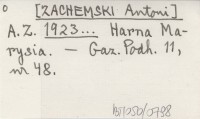 o [ZACHEMSKI Antoni]
A.Z. 1923... Harna Ma-
rysia. — Gaz. Podh. 11,
nr 48.